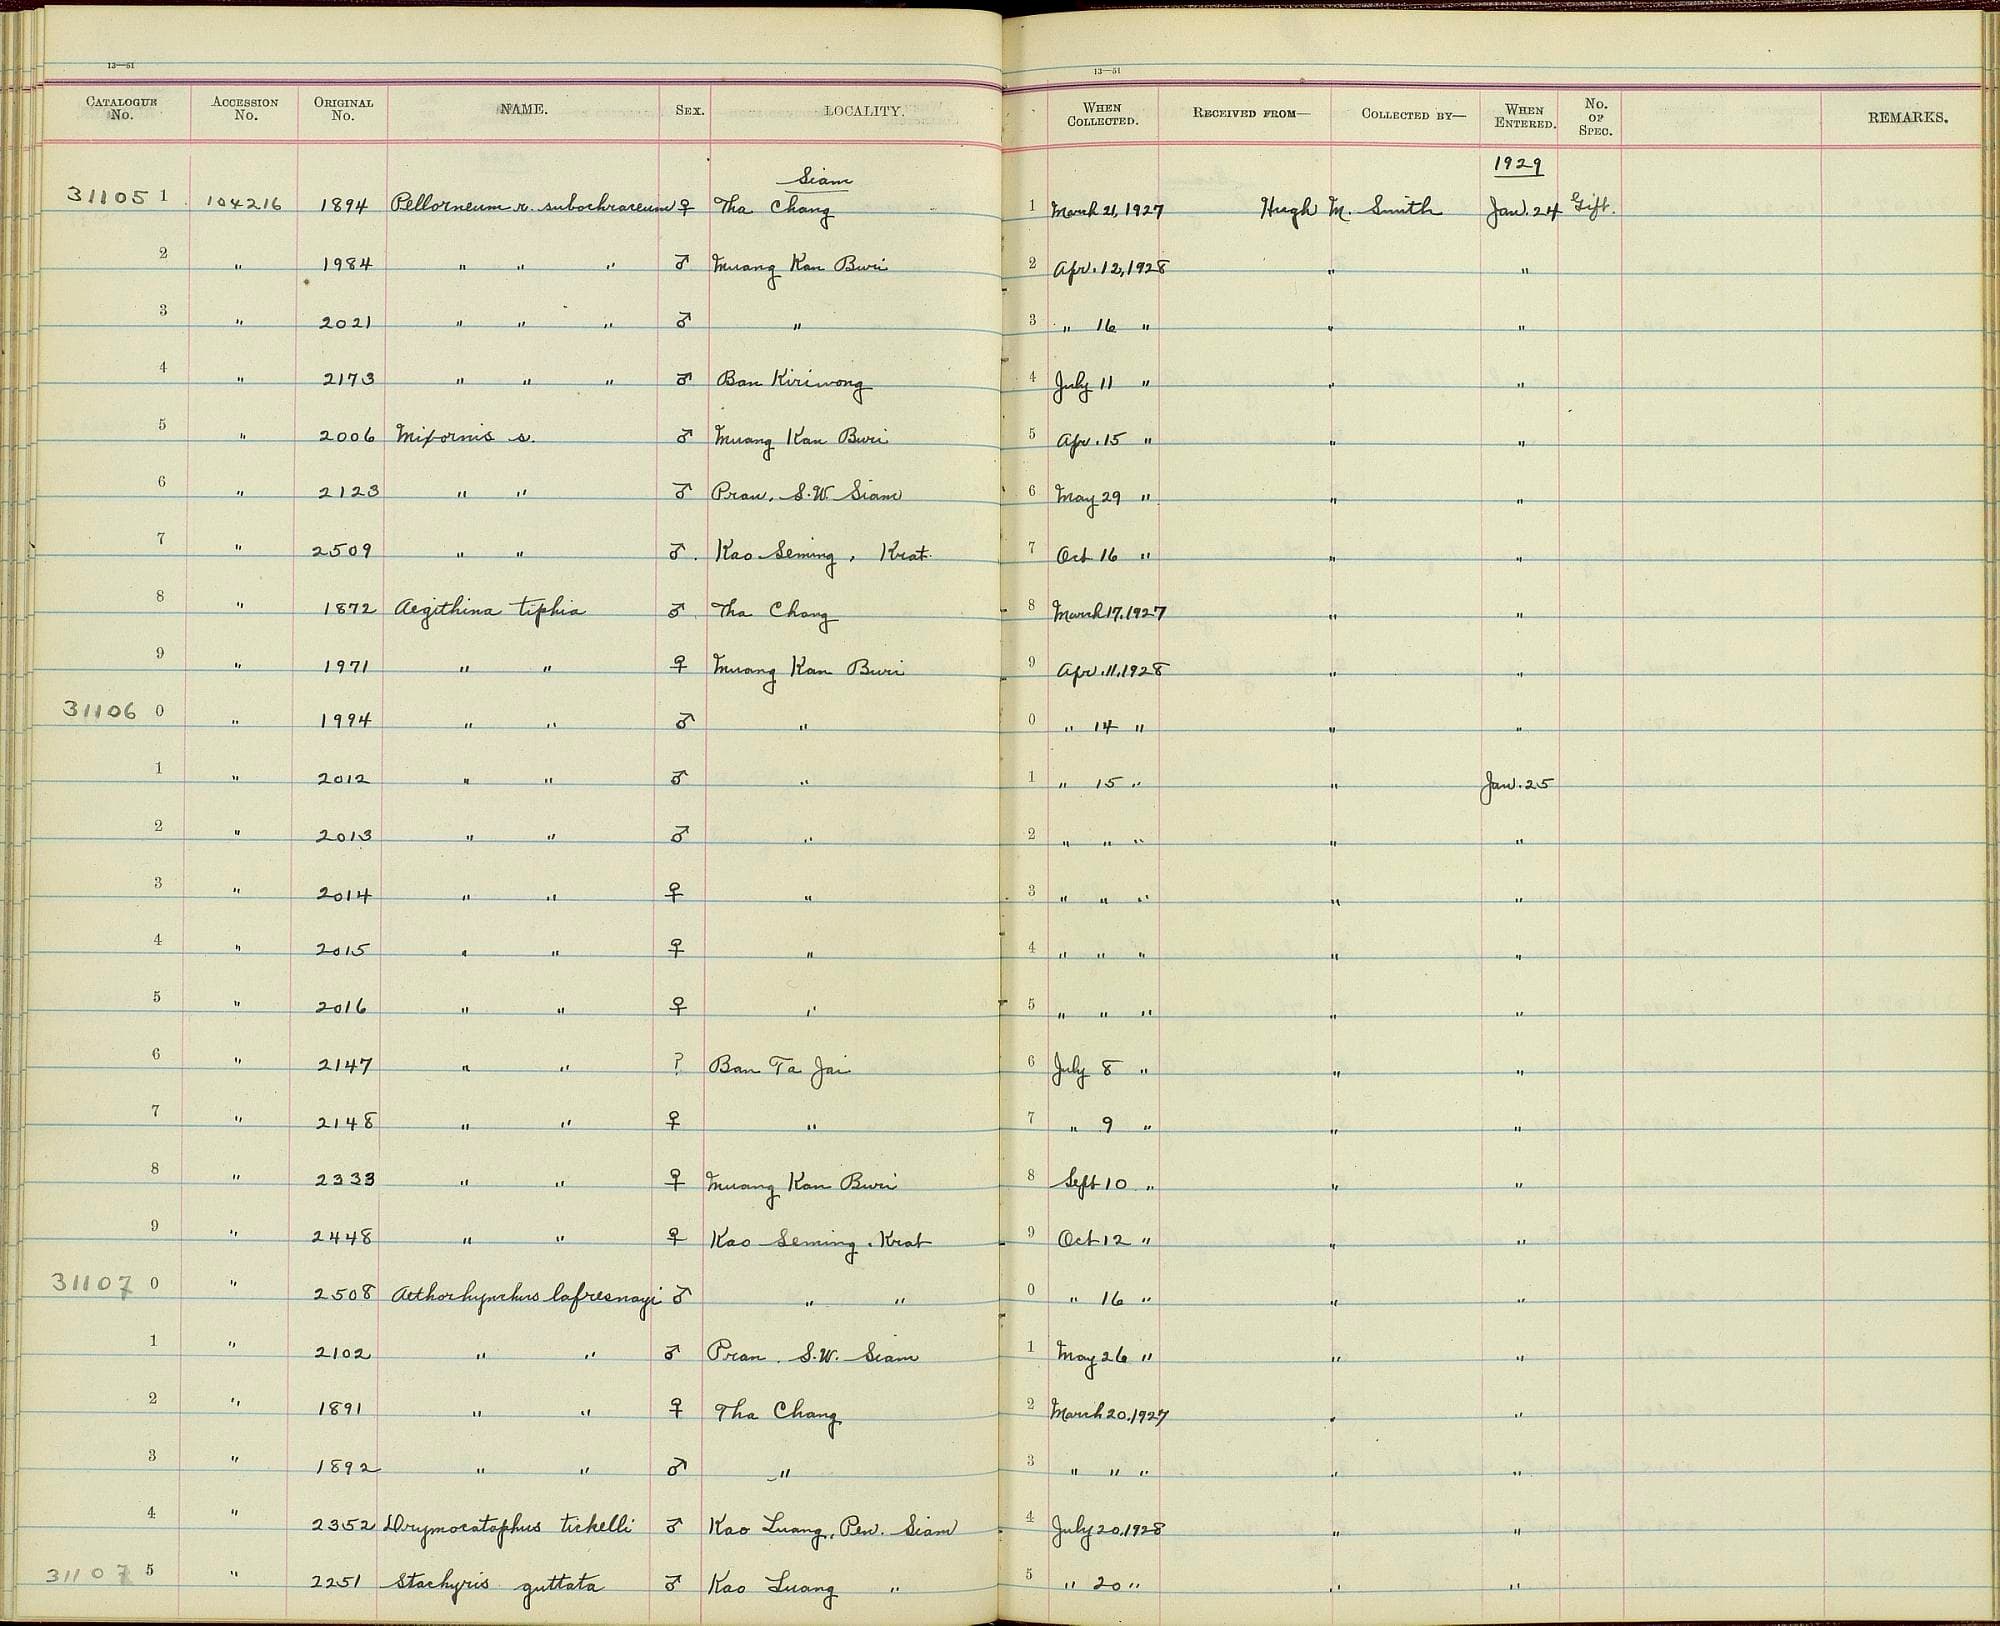 13—51
13—51
CATALOGUE No. ACCESSION No. ORIGINAL No. NAME. SEX. LOCALITY. WHEN COLLECTED. RECEIVED FROM— COLLECTED BY— WHEN ENTERED. No. OF SPEC. REMARKS.
Siam 1929
31105 1 104216 1894 Pellorneum r. subochraceum ♀ Tha Chang 1 March 21, 1927 Hugh M. Smith Jan. 24 Gift.
2 " 1984 " " " ♂ Muang Kan Buri 2 Apr. 12, 1928 " "
3 " 2021 " " " ♂ " 3 " 16 " " "
4 " 2173 " " " ♂ Ban Kiriwong 4 July 11 " " "
5 " 2006 Mixornis s. ♂ Muang Kan Buri 5 Apr. 15 " " "
6 " 2123 " " ♂ Pran. S.W. Siam 6 May 29 " " "
7 " 2509 " " ♂. Kao Seming, Krat. 7 Oct 16 " " "
8 " 1872 Aegithina tiphia ♂ Tha Chang 8 March 17, 1927 " "
9 " 1971 " " ♀ Muang Kan Buri 9 Apr. 11, 1928 " "
31106 0 " 1994 " " ♂ " 0 " 14 " " "
1 " 2012 " " ♂ " 1 " 15 " " Jan. 25
2 " 2013 " " ♂ " 2 " " " " "
3 " 2014 " " ♀ " 3 " " " " "
4 " 2015 " " ♀ " 4 " " " " "
5 " 2016 " " ♀ " 5 " " " " "
6 " 2147 " " ? Ban Ta Jai 6 July 8 " " "
7 " 2148 " " ♀ " 7 " 9 " " "
8 " 2333 " " ♀ Muang Kan Buri 8 Sept 10 " " "
9 " 2448 " " ♀ Kao Seming, Krat 9 Oct 12 " " "
31107 0 " 2508 Aethorhynchus lafresnayi ♂ " " 0 " 16 " " "
1 " 2102 " " ♂ Pran. S.W. Siam 1 May 26 " " "
2 " 1891 " " ♀ Tha Chang 2 March 20, 1927 " "
3 " 1892 " " ♂ " 3 " " " " "
4 " 2352 Drymocataphus tickelli ♂ Kao Luang, Pen. Siam 4 July 20, 1928 " "
31107 5 " 2251 Stachyris guttata ♂ Kao Luang " 5 " 20 " " "